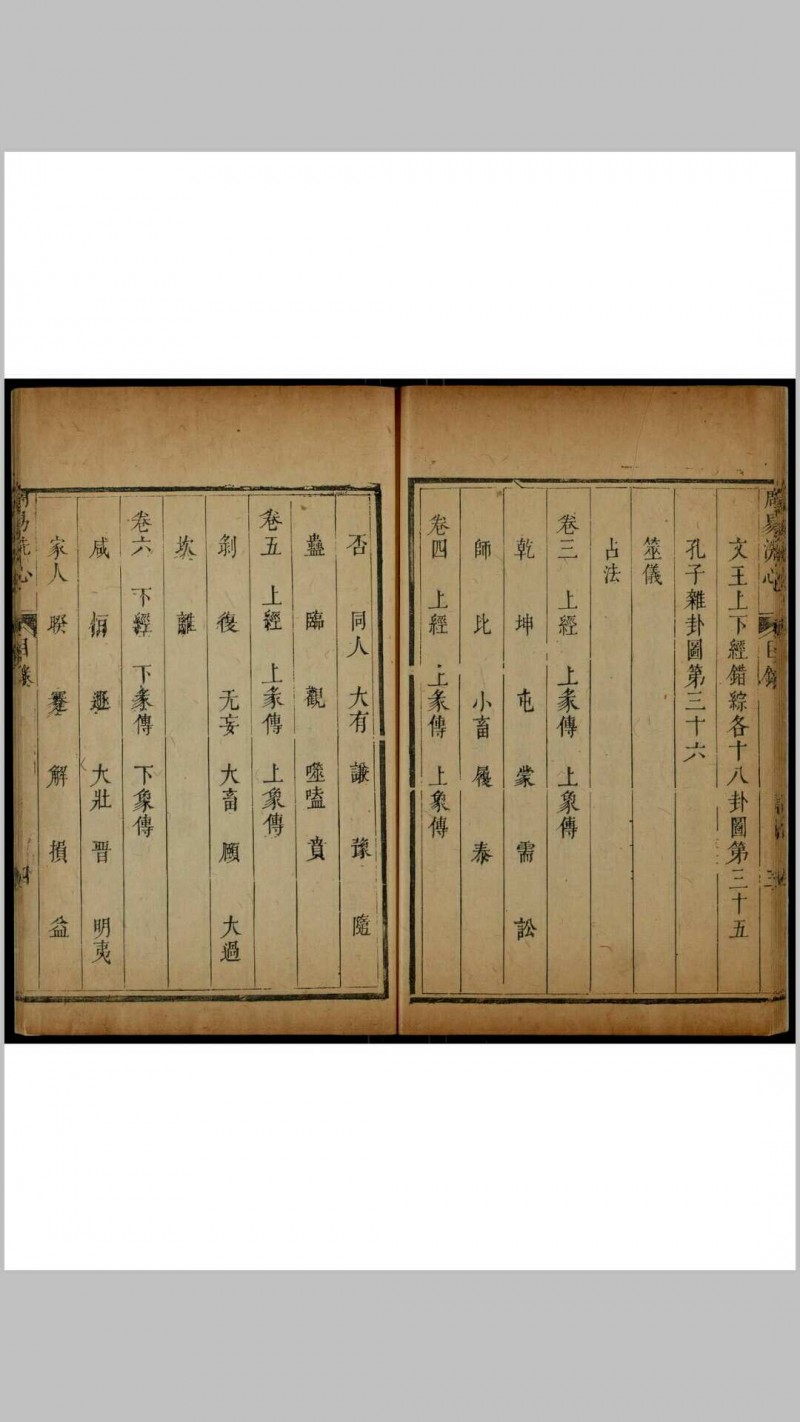 周易洗心 目錄 三
文王上下經錯綜各十八卦圖第三十五
孔子雜卦圖第三十六
筮儀
占法
卷三 上經 上彖傳 上象傳
乾 坤 屯 蒙 需 訟
師 比 小畜 履 泰
卷四 上經 上彖傳 上象傳
否 同人 大有 謙 豫 隨
蠱 臨 觀 噬嗑 賁
卷五 上經 上彖傳 上象傳
剝 復 无妄 大畜 頤 大過
坎 離
卷六 下經 下彖傳 下象傳
咸 恒 遯 大壯 晉 明夷
家人 睽 蹇 解 損 益
周易洗心 目錄 四